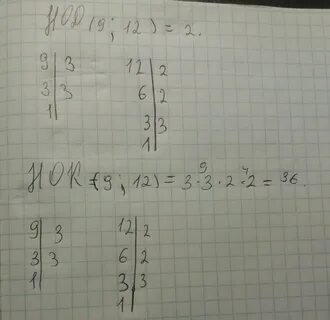 НОД (9; 12) = 2.
9 | 3 12 | 2
3 | 3 6 | 2
1 | 3 | 3
1 |
НОК (9; 12) = 3·3·2·2 = 36.
9 4
9 | 3 12 | 2
3 | 3 6 | 2
1 | 3 | 3
1 |